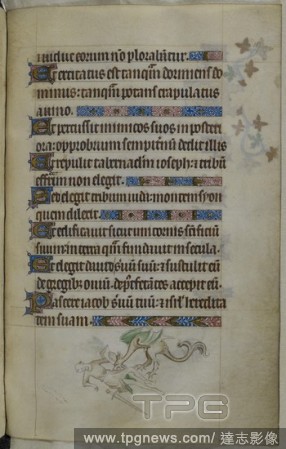 et vidue eorum nō plorabūtur.
Et excitatus est tanqͣm dormiens do
minus: tanqͣm potans crapulatus
a vino.
Et percussit inimicos suos in posteri
ora: opprobrium sempitnū dedit illis
Et repulit tabernaclm ioseph: et tribū
effrem non elegit.
Sed elegit tribum iuda: montem syon
quem dilexit.
Et edificavit sicut unicornis sctificiū
suum: in terra qͣm fundavit in secula.
Et elegit david suū et sustulit eū
de gregibz oviū: accepit eū
Pascere iacob suū et isrl heredita
tem suam.
TPG
www.tpgnews.com/ 達志影像